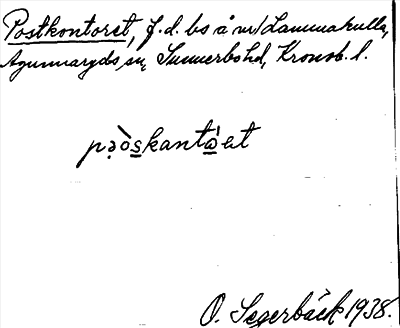 Postkontoret, f.d. bs å nr 1 Lammakulla,
Agunnaryds sn, Sunnerbo hd, Kronob. l.
pəòskantáet
O. Segerbäck 1938.